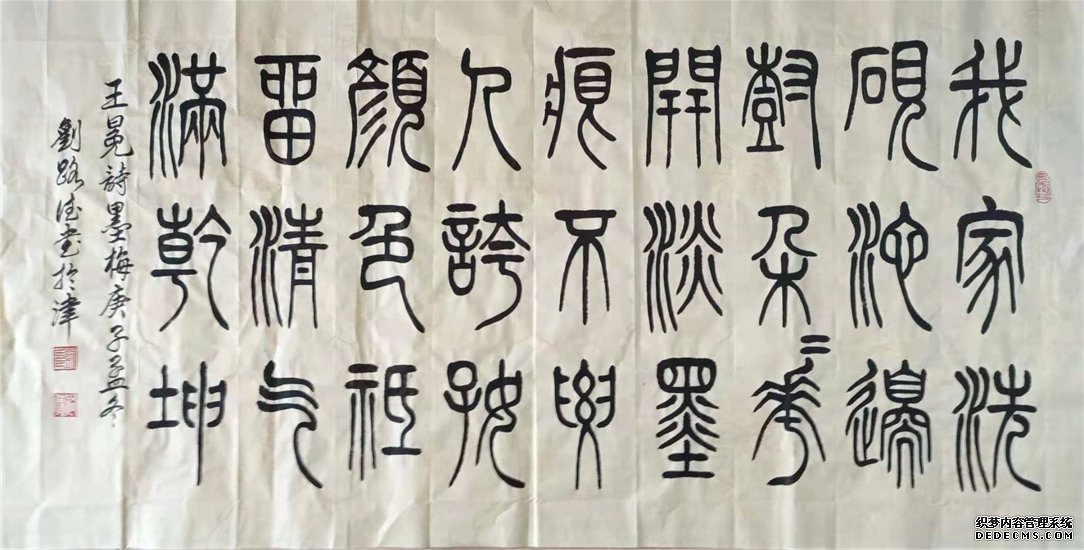 我家洗
硯池邊
樹朵〻華
開淡墨
痕不要
人誇好
顏色祗
畱清气
滿乾坤
王冕詩墨梅庚子孟冬
劉路書於津
织梦内容管理系统
DEDECMS.COM